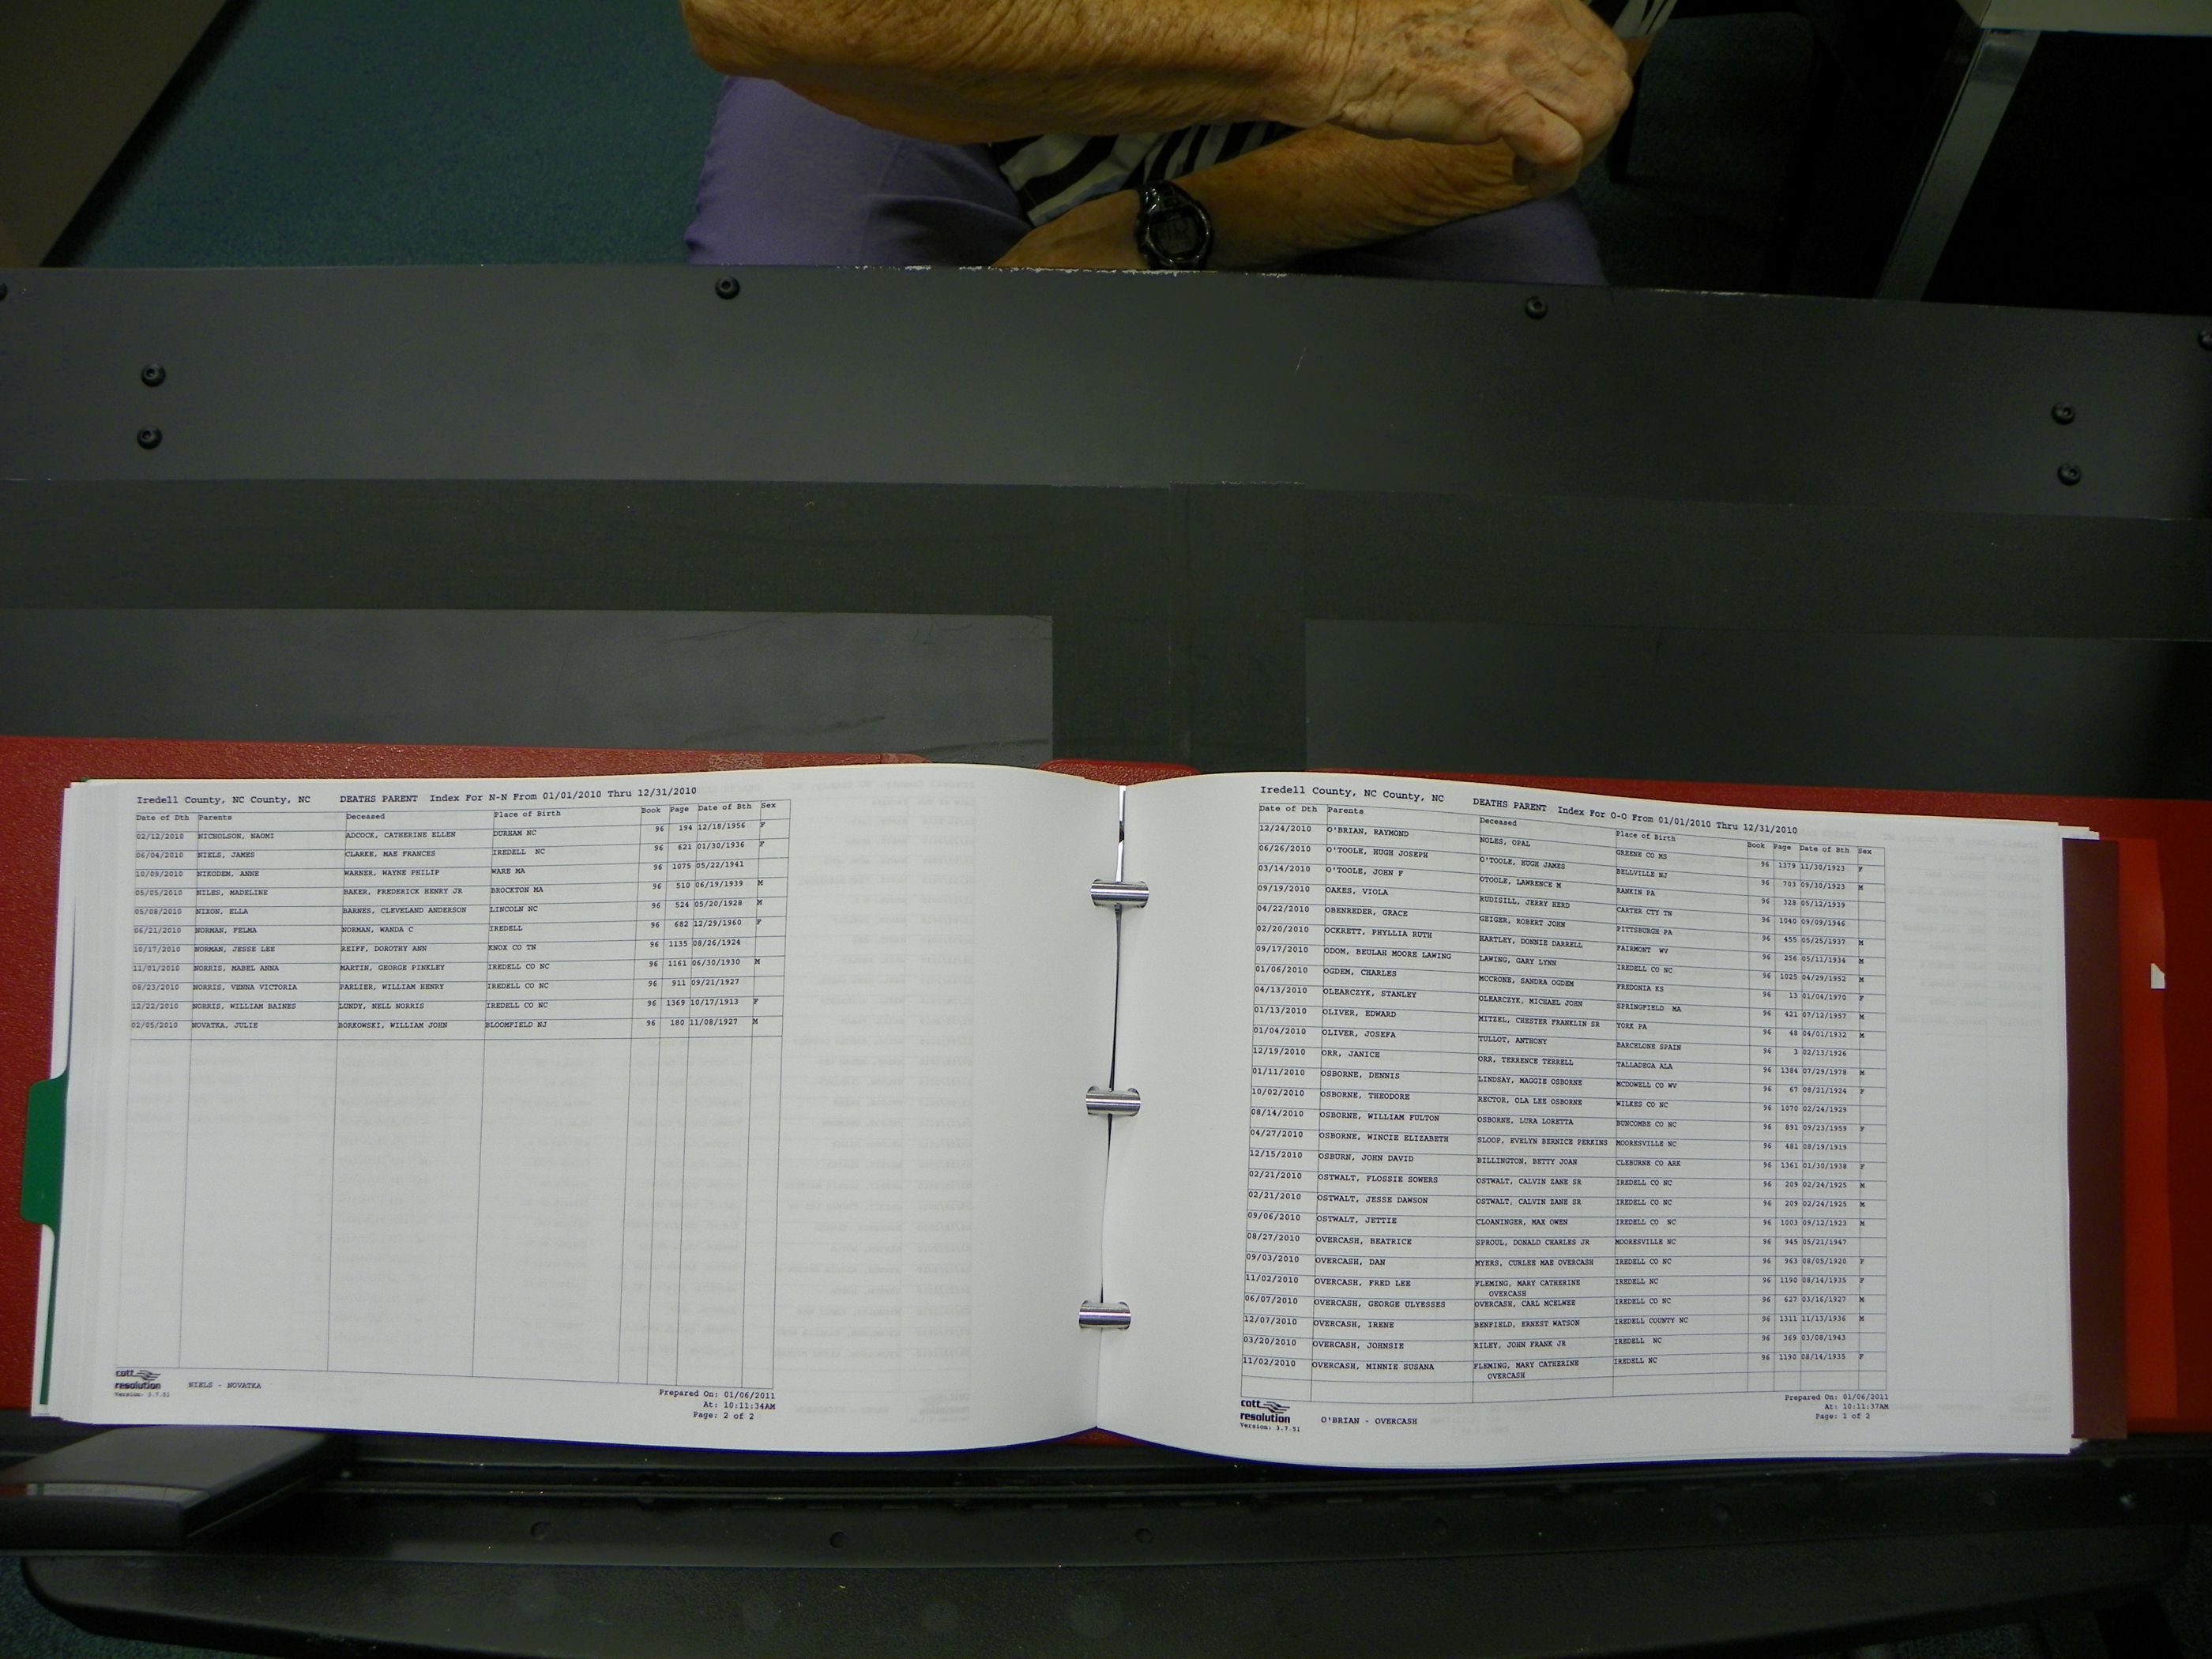 Iredell County, NC County, NC DEATHS PARENT Index For N-N From 01/01/2010 Thru 12/31/2010
Date of Dth Parents Deceased Place of Birth Book Page Date of Bth Sex
02/12/2010 NICHOLSON, NAOMI ADCOCK, CATHERINE ELLEN DURHAM NC 96 194 12/18/1956 F
06/04/2010 NIELS, JAMES CLARKE, MAE FRANCES IREDELL NC 96 621 01/30/1936 F
10/09/2010 NIKODEM, ANNE WARNER, WAYNE PHILIP WARE MA 96 1075 05/22/1941
05/05/2010 NILES, MADELINE BAKER, FREDERICK HENRY JR BROCKTON MA 96 510 06/19/1939 M
05/08/2010 NIXON, ELLA BARNES, CLEVELAND ANDERSON LINCOLN NC 96 524 05/20/1928 M
06/21/2010 NORMAN, FELMA NORMAN, WANDA C IREDELL 96 682 12/29/1960 F
10/17/2010 NORMAN, JESSE LEE REIFF, DOROTHY ANN KNOX CO TN 96 1135 08/26/1924
11/01/2010 NORRIS, MABEL ANNA MARTIN, GEORGE PINKLEY IREDELL CO NC 96 1161 06/30/1930 M
08/23/2010 NORRIS, VENNA VICTORIA PARLIER, WILLIAM HENRY IREDELL CO NC 96 911 09/21/1927
12/22/2010 NORRIS, WILLIAM BAINES LUNDY, NELL NORRIS IREDELL CO NC 96 1369 10/17/1913 F
02/05/2010 NOVATKA, JULIE BORKOWSKI, WILLIAM JOHN BLOOMFIELD NJ 96 180 11/08/1927 M
cott
resolution
Version: 3.7.51
NIELS - NOVATKA
Prepared On: 01/06/2011
At: 10:11:34AM
Page: 2 of 2
Iredell County, NC County, NC DEATHS PARENT Index For O-O From 01/01/2010 Thru 12/31/2010
Date of Dth Parents Deceased Place of Birth Book Page Date of Bth Sex
12/24/2010 O'BRIAN, RAYMOND NOLES, OPAL GREENE CO MS 96 1379 11/30/1923 F
06/26/2010 O'TOOLE, HUGH JOSEPH O'TOOLE, HUGH JAMES BELLVILLE NJ 96 703 09/30/1923 M
03/14/2010 O'TOOLE, JOHN F OTOOLE, LAWRENCE M RANKIN PA 96 328 05/12/1939
09/19/2010 OAKES, VIOLA RUDISILL, JERRY HERD CARTER CTY TN 96 1040 09/09/1946
04/22/2010 OBENREDER, GRACE GEIGER, ROBERT JOHN PITTSBURGH PA 96 455 05/25/1937 M
02/20/2010 OCKRETT, PHYLLIA RUTH HARTLEY, DONNIE DARRELL FAIRMONT WV 96 256 05/11/1934 M
09/17/2010 ODOM, BEULAH MOORE LAWING LAWING, GARY LYNN IREDELL CO NC 96 1025 04/29/1952 M
01/06/2010 OGDEM, CHARLES MCCRONE, SANDRA OGDEM FREDONIA KS 96 13 01/04/1970 F
04/13/2010 OLEARCZYK, STANLEY OLEARCZYK, MICHAEL JOHN SPRINGFIELD MA 96 421 07/12/1957 M
01/13/2010 OLIVER, EDWARD MITZEL, CHESTER FRANKLIN SR YORK PA 96 48 04/01/1932 M
01/04/2010 OLIVER, JOSEFA TULLOT, ANTHONY BARCELONE SPAIN 96 3 02/13/1926
12/19/2010 ORR, JANICE ORR, TERRENCE TERRELL TALLADEGA ALA 96 1384 07/29/1978 M
01/11/2010 OSBORNE, DENNIS LINDSAY, MAGGIE OSBORNE MCDOWELL CO WV 96 67 08/21/1924 F
10/02/2010 OSBORNE, THEODORE RECTOR, OLA LEE OSBORNE WILKES CO NC 96 1070 02/24/1929
08/14/2010 OSBORNE, WILLIAM FULTON OSBORNE, LURA LORETTA BUNCOMBE CO NC 96 891 09/23/1959 F
04/27/2010 OSBORNE, WINCIE ELIZABETH SLOOP, EVELYN BERNICE PERKINS MOORESVILLE NC 96 481 08/19/1919
12/15/2010 OSBURN, JOHN DAVID BILLINGTON, BETTY JOAN CLEBURNE CO ARK 96 1361 01/30/1938 F
02/21/2010 OSTWALT, FLOSSIE SOWERS OSTWALT, CALVIN ZANE SR IREDELL CO NC 96 209 02/24/1925 M
02/21/2010 OSTWALT, JESSE DAWSON OSTWALT, CALVIN ZANE SR IREDELL CO NC 96 209 02/24/1925 M
09/06/2010 OSTWALT, JETTIE CLOANINGER, MAX OWEN IREDELL CO NC 96 1003 09/12/1923 M
08/27/2010 OVERCASH, BEATRICE SPROUL, DONALD CHARLES JR MOORESVILLE NC 96 945 05/21/1947
09/03/2010 OVERCASH, DAN MYERS, CURLEE MAE OVERCASH IREDELL CO NC 96 963 08/05/1920 F
11/02/2010 OVERCASH, FRED LEE FLEMING, MARY CATHERINE IREDELL NC 96 1190 08/14/1935 F
OVERCASH
06/07/2010 OVERCASH, GEORGE ULYESSES OVERCASH, CARL MCELWEE IREDELL CO NC 96 627 03/16/1927 M
12/07/2010 OVERCASH, IRENE BENFIELD, ERNEST WATSON IREDELL COUNTY NC 96 1311 11/13/1936 M
03/20/2010 OVERCASH, JOHNSIE RILEY, JOHN FRANK JR IREDELL NC 96 369 03/08/1943
11/02/2010 OVERCASH, MINNIE SUSANA FLEMING, MARY CATHERINE IREDELL NC 96 1190 08/14/1935 F
OVERCASH
cott
resolution
Version: 3.7.51
O'BRIAN - OVERCASH
Prepared On: 01/06/2011
At: 10:11:37AM
Page: 1 of 2